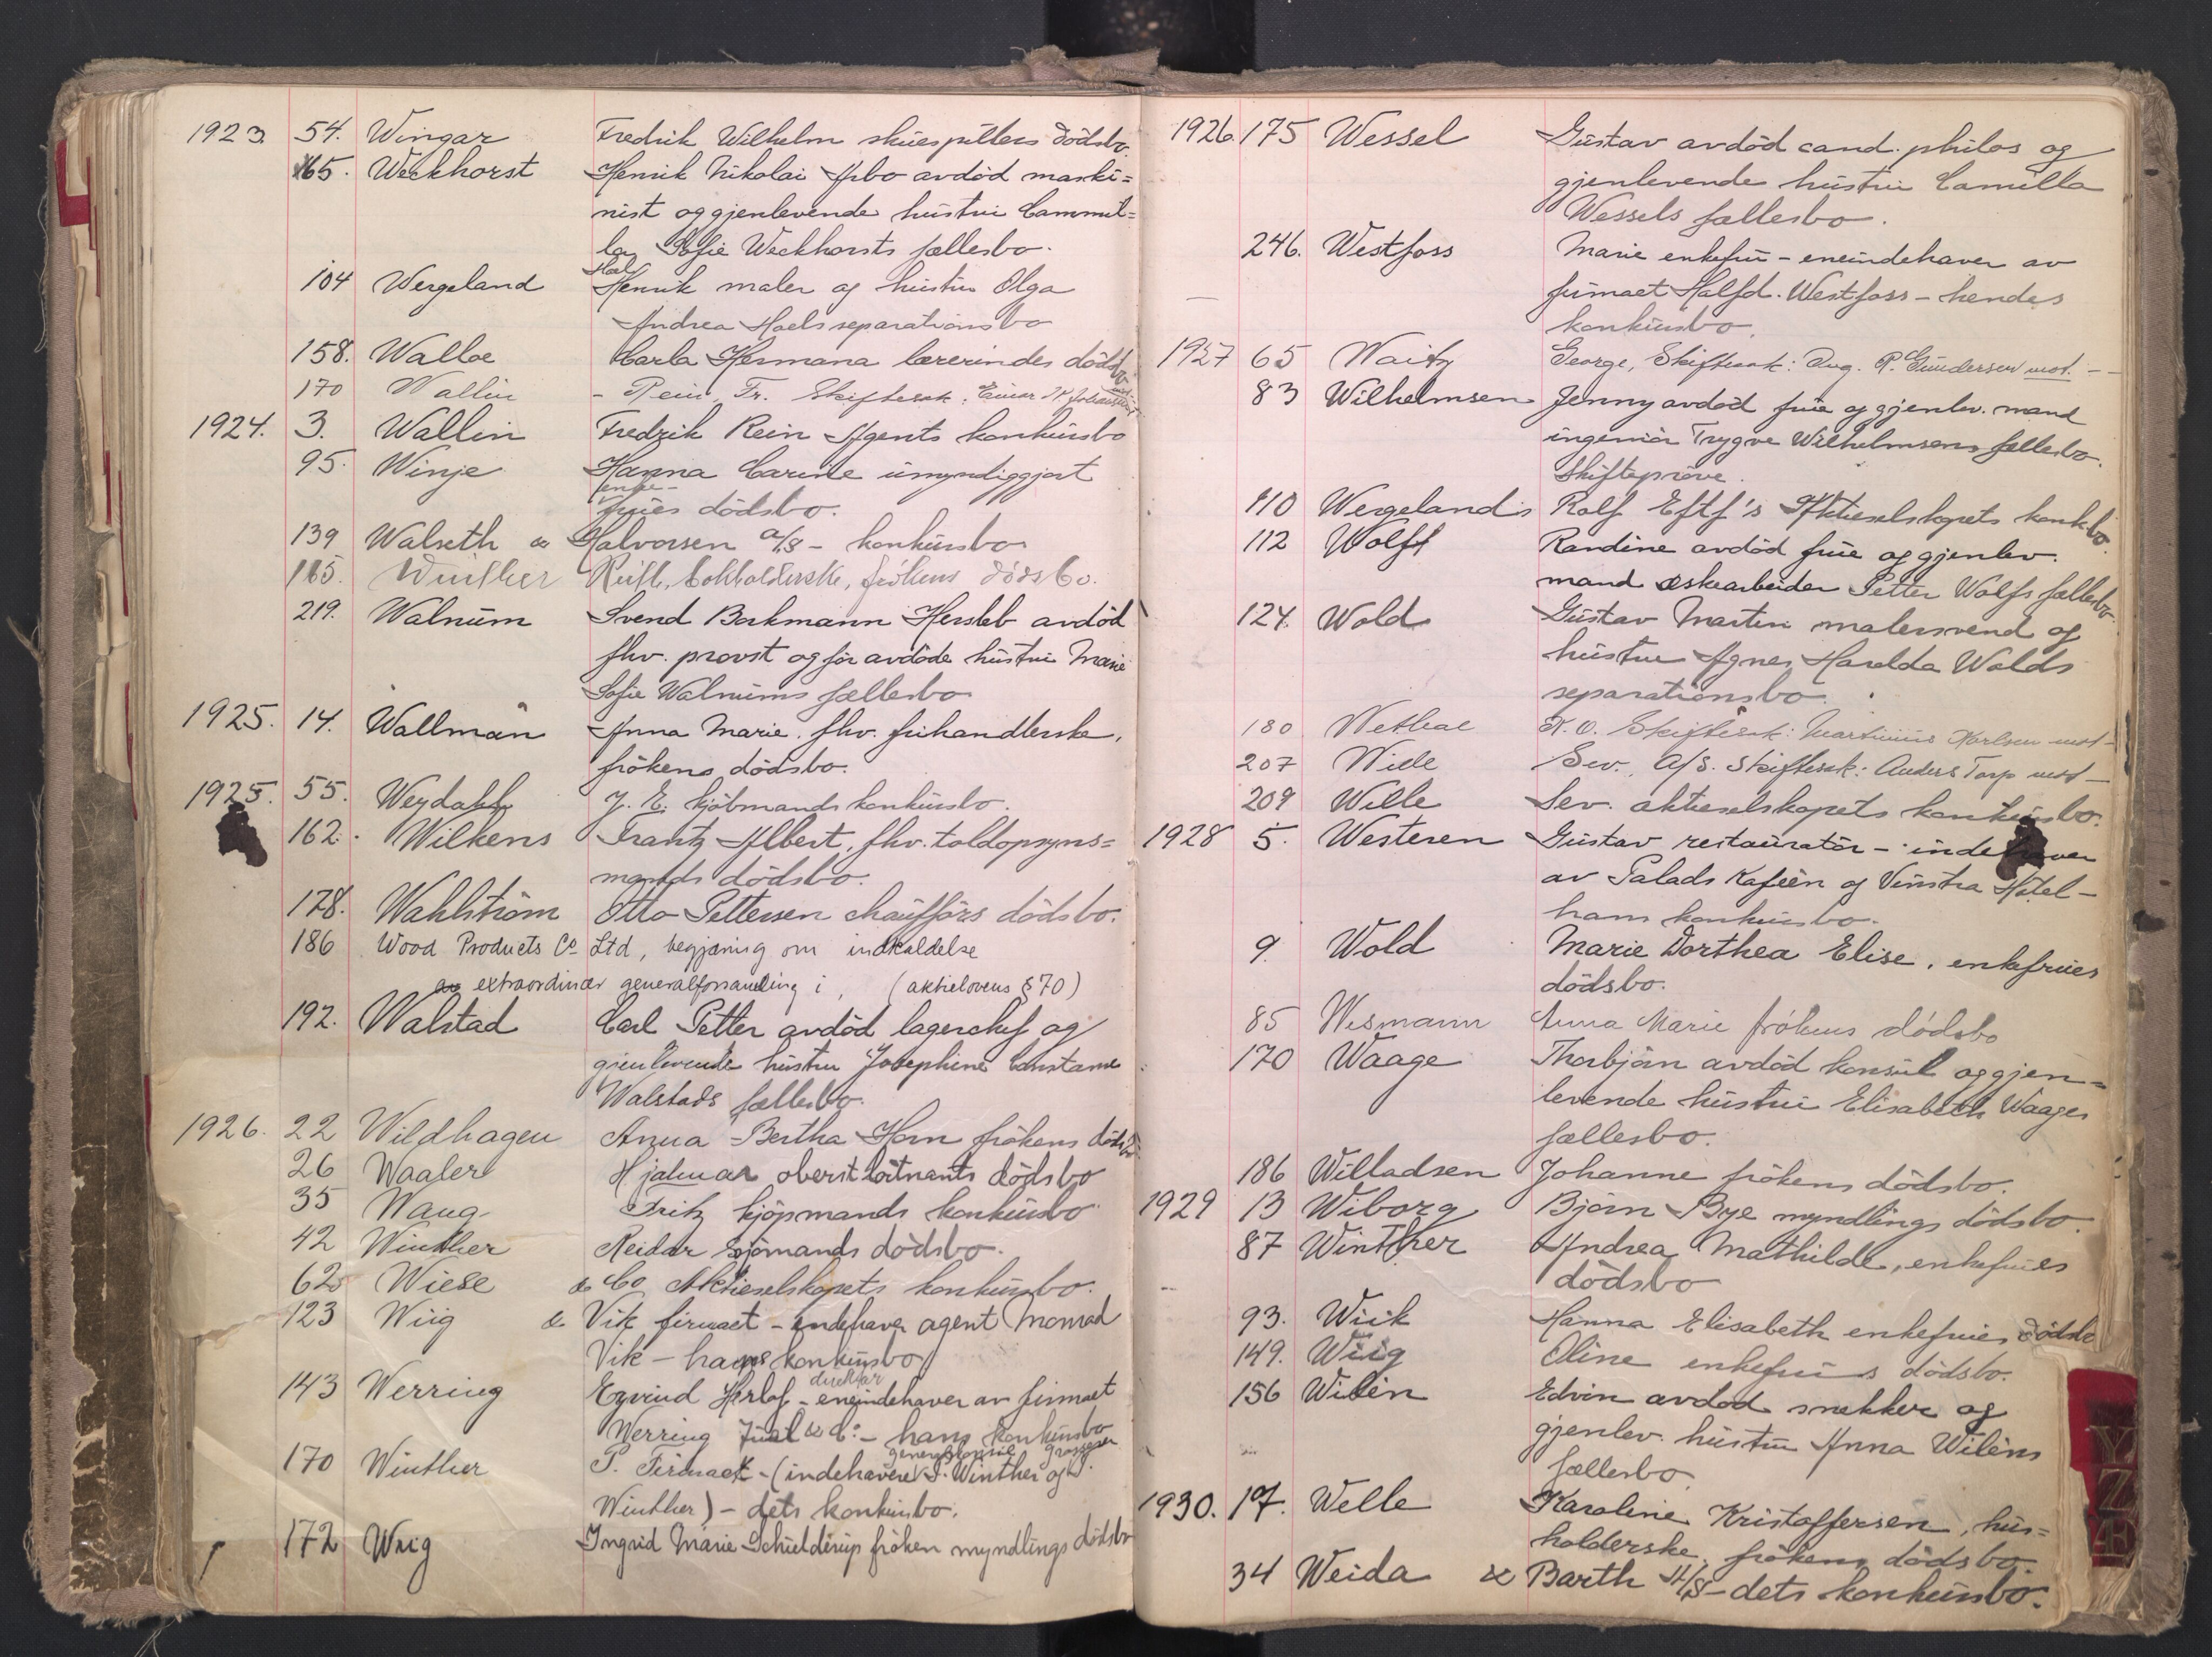 1923. 54. Wingar Fredrik Wilhelm skuespillers dödsbo.
65. Weckhorst Henrik Nikolai Arbo avdöd maski=
nist og gjenlevende hustru Cammil=
la Sofie Weckhorsts fællesbo.
Hael
104 Wergeland Henrik maler og hustru Olga
Andrea Haels separationsbo
158. Walloe Carla Hermana lærerindes dödsbo
170 Wallin - Rein, Fr. Skiftesak: Einar
1924. 3. Wallin Fredrik Rein Agents konkursbo
95. Winje Hanna Carine umyndiggjort
enke-
frues dödsbo.
139 Walseth & Halvorsen A/S - konkursbo
185. Winther frökens dödsbo.
219. Walnum Svend Borkmann Hersleb avdöd
fhv. provst og før avdöde hustru Marie
Sofie Walnums fællesbo
1925. 14. Wallman Anna Marie. fhv. frihandlerske,
frökens dödsbo.
1925. 55. Weydahl J. E. kjöbmands konkursbo.
162. Wilkens Frantz Albert, fhv. toldopsyns=
mands dödsbo.
178. Wahlström Otto Pettersen chaufförs dödsbo.
186 Wood Products Co Ltd, begjæring om indkaldelse
av extraordinær generalforsamling i, (aktielovens § 70)
192. Walstad Carl Petter avdöd lagerchef og
gjenlevende hustru Josephine Constance
Walstads fællesbo.
1926. 22 Wildhagen Anna Bertha Horn frökens dödsbo
26 Waaler Hjalmar oberstlöitnants dödsbo
35 Waug Fritz kjöpmands konkursbo
42 Winther Reidar sjömands dödsbo.
62 Wiese & Co Aktieselskapets konkursbo.
123 Wiig & Vik firmaet - indehaver agent Monrad
Vik - hans konkursbo
direktør
143 Werring Eyvind Herlof - eneindehaver av firmaet
Werring Juul & Co - hans konkursbo
generalkonsul grosserer
170 Winther P. Firmaet - (indehavere P. Winther og
Winther) - dets konkursbo.
172 Wiig Ingrid Marie Schielderup fröken myndlings dödsbo
1926. 175 Wessel Gustav avdöd cand. philos og
gjenlevende hustru Camilla
Wessels fællesbo.
246. Westfoss Marie enkefru - eneindehaver av
firmaet Halfd. Westfoss - hendes
konkursbo.
1927 65 Waitz George, Skiftesak: Aug. P. Gundersen mot. -
83 Wilhelmsen Jenny avdöd frue og gjenlev. mand
ingeniör Trygve Wilhelmsens fællesbo.
Skifteprøve.
110 Wergeland's Rolf Eftf's Aktieselskapets konkbo.
112 Wolff Randine avdöd frue og gjenlev.
mand æskearbeider Petter Wolfs fællesbo.
124. Wold Gustav Martin malersvend og
hustru Agnes Harelda Wolds
separationsbo.
180 Wethal K. O. Skiftesak: Martinius Karlsen mot -
207 Wille Sev. A/S. Skiftesak: Anders Torp mot -
209 Wille Sev. aktieselskapets konkursbo.
1928 5. Westeren Gustav restauratör - indehaver
av Palads Kafeen og Vinstra Hotel -
hans konkursbo.
9. Wold Marie Dorthea Elise, enkefrues
dödsbo.
85 Wismann Anna Marie frökens dödsbo
170 Waage Thorbjörn avdöd konsul og gjen=
levende hustru Elisabeth Waages
fællesbo.
186 Willadsen Johanne frökens dödsbo.
1929 13 Wiborg Bjørn Bye myndlings dödsbo.
87 Winther Andrea Mathilde, enkefrues
dödsbo
93. Wiik Hanna Elisabeth enkefrues dödsbo
149. Wiig Oline enkefrus dödsbo.
156 Wilén Edvin avdöd snekker og
gjenlev. hustru Anna Wiléns
fællesbo.
1930. 17. Welle Karoline Kristoffersen, hus=
holderske, frökens dödsbo.
34 Weida & Barth A/S - dets konkursbo.
Y
Z
Æ